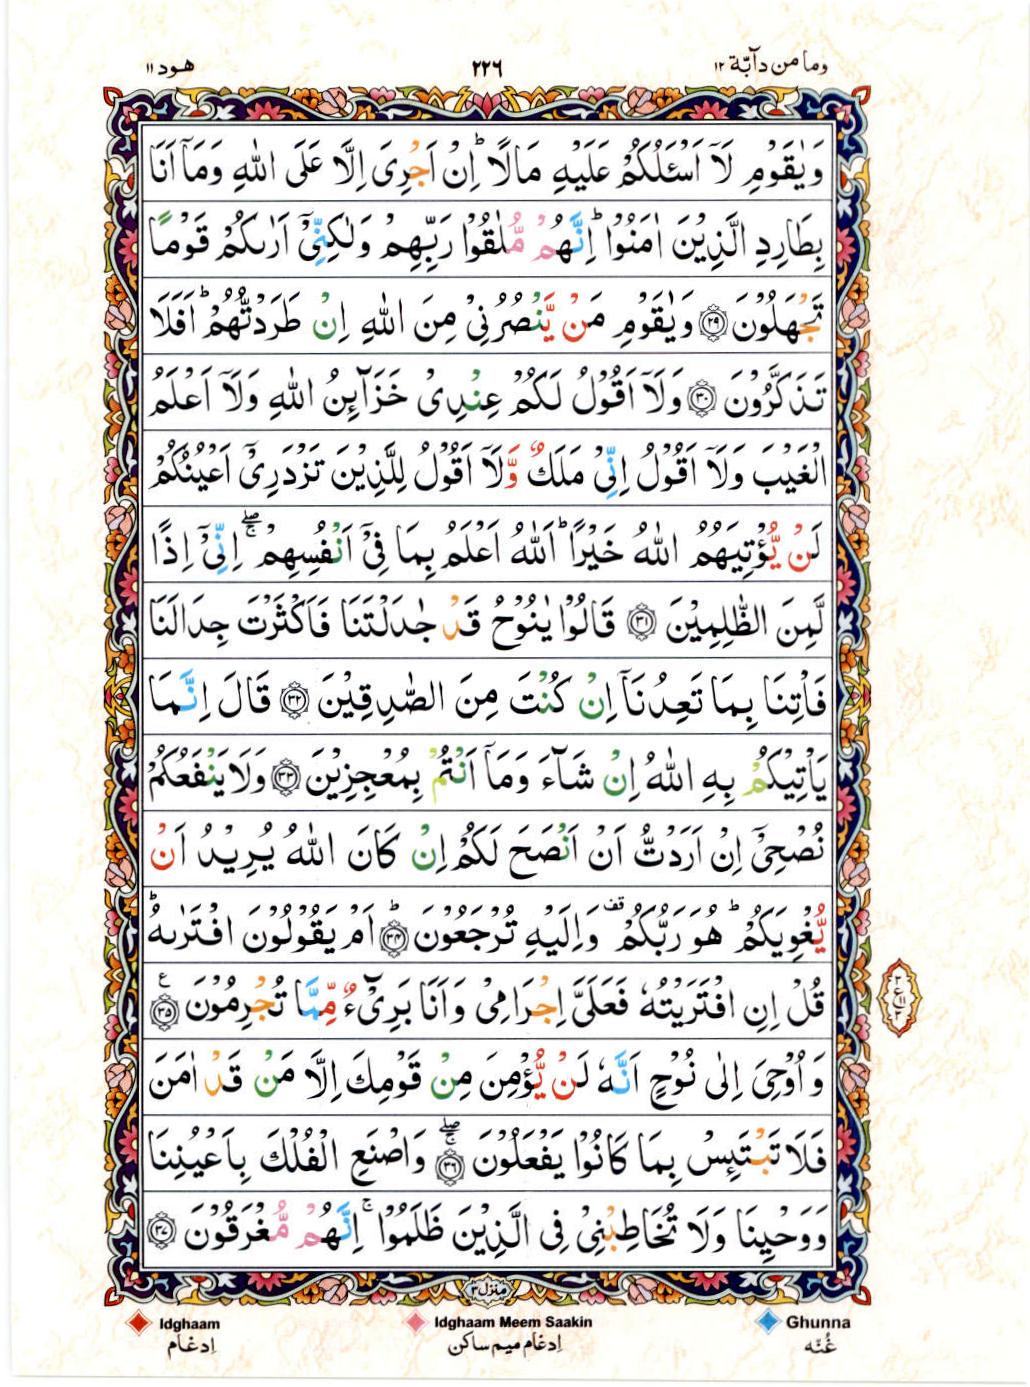 وما من دآبّة ١٢
٢٢٦
هود ١١
وَيٰقَوْمِ لَآ اَسْـَٔلُكُمْ عَلَيْهِ مَالًا ؕ اِنْ اَجْرِىَ اِلَّا عَلَى اللّٰهِ وَمَآ اَنَا
بِطَارِدِ الَّذِيْنَ اٰمَنُوْا ؕ اِنَّهُمْ مُّلٰقُوْا رَبِّهِمْ وَلٰكِنِّىْۤ اَرٰىكُمْ قَوْمًا
تَجْهَلُوْنَ ﴿٢٩﴾ وَيٰقَوْمِ مَنْ يَّنْصُرُنِىْ مِنَ اللّٰهِ اِنْ طَرَدْتُّهُمْ ؕ اَفَلَا
تَذَكَّرُوْنَ ﴿٣٠﴾ وَلَآ اَقُوْلُ لَكُمْ عِنْدِىْ خَزَآئِنُ اللّٰهِ وَلَآ اَعْلَمُ
الْغَيْبَ وَلَآ اَقُوْلُ اِنِّىْ مَلَكٌ وَّلَآ اَقُوْلُ لِلَّذِيْنَ تَزْدَرِىْۤ اَعْيُنُكُمْ
لَنْ يُّؤْتِيَهُمُ اللّٰهُ خَيْرًا ؕ اَللّٰهُ اَعْلَمُ بِمَا فِىْۤ اَنْفُسِهِمْ ۖۚ اِنِّىْۤ اِذًا
لَّمِنَ الظّٰلِمِيْنَ ﴿٣١﴾ قَالُوْا يٰنُوْحُ قَدْ جٰدَلْتَنَا فَاَكْثَرْتَ جِدَالَنَا
فَاْتِنَا بِمَا تَعِدُنَآ اِنْ كُنْتَ مِنَ الصّٰدِقِيْنَ ﴿٣٢﴾ قَالَ اِنَّمَا
يَاْتِيْكُمْ بِهِ اللّٰهُ اِنْ شَآءَ وَمَآ اَنْتُمْ بِمُعْجِزِيْنَ ﴿٣٣﴾ وَلَا يَنْفَعُكُمْ
نُصْحِىْۤ اِنْ اَرَدْتُّ اَنْ اَنْصَحَ لَكُمْ اِنْ كَانَ اللّٰهُ يُرِيْدُ اَنْ
يُّغْوِيَكُمْ ؕ هُوَ رَبُّكُمْ قف وَاِلَيْهِ تُرْجَعُوْنَ ؕ ﴿٣٤﴾ اَمْ يَقُوْلُوْنَ افْتَرٰىهُ ؕ
قُلْ اِنِ افْتَرَيْتُهٗ فَعَلَىَّ اِجْرَامِىْ وَاَنَا بَرِىْٓءٌ مِّمَّا تُجْرِمُوْنَ ﴿٣٥﴾ ع
وَاُوْحِىَ اِلٰى نُوْحٍ اَنَّهٗ لَنْ يُّؤْمِنَ مِنْ قَوْمِكَ اِلَّا مَنْ قَدْ اٰمَنَ
فَلَا تَبْتَئِسْ بِمَا كَانُوْا يَفْعَلُوْنَ ۖۚ ﴿٣٦﴾ وَاصْنَعِ الْفُلْكَ بِاَعْيُنِنَا
وَوَحْيِنَا وَلَا تُخَاطِبْنِىْ فِى الَّذِيْنَ ظَلَمُوْا ۚ اِنَّهُمْ مُّغْرَقُوْنَ ﴿٣٧﴾
منزل ٣
Idghaam
ادغام
Idghaam Meem Saakin
ادغام میم ساکن
Ghunna
غُنّه